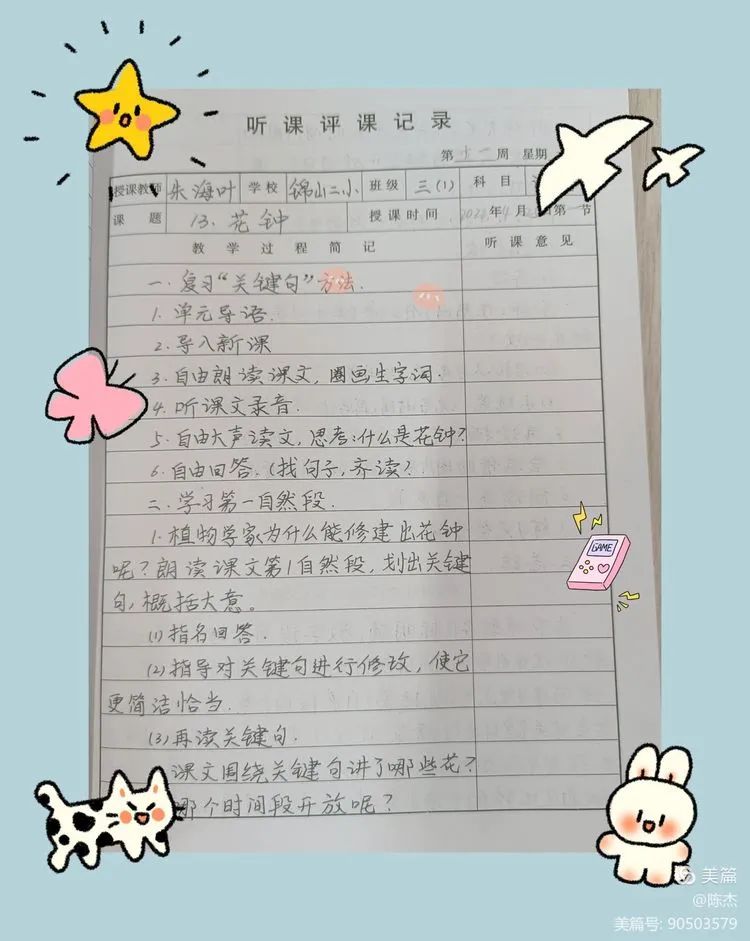 听课评课记录
第十一周 星期
授课教师 朱海叶 学校 锦山二小 班级 三(1) 科目
课题 13.花钟 授课时间 2024年4月 日第一节
教学过程简记 听课意见
一.复习“关键句”方法.
1.单元导语.
2.导入新课
3.自由朗读课文,圈画生字词.
4.听课文录音.
5.自由大声读文,思考:什么是花钟?
6.自由回答.(找句子,齐读?
二.学习第一自然段.
1.植物学家为什么能修建出花钟
呢?朗读课文第1自然段,划出关键
句,概括大意。
(1)指名回答.
(2)指导对关键句进行修改,使它
更简洁恰当.
(3)再读关键句.
课文围绕关键句讲了哪些花?
哪个时间段开放呢?
GAME
美篇
@陈杰
美篇号: 90503579